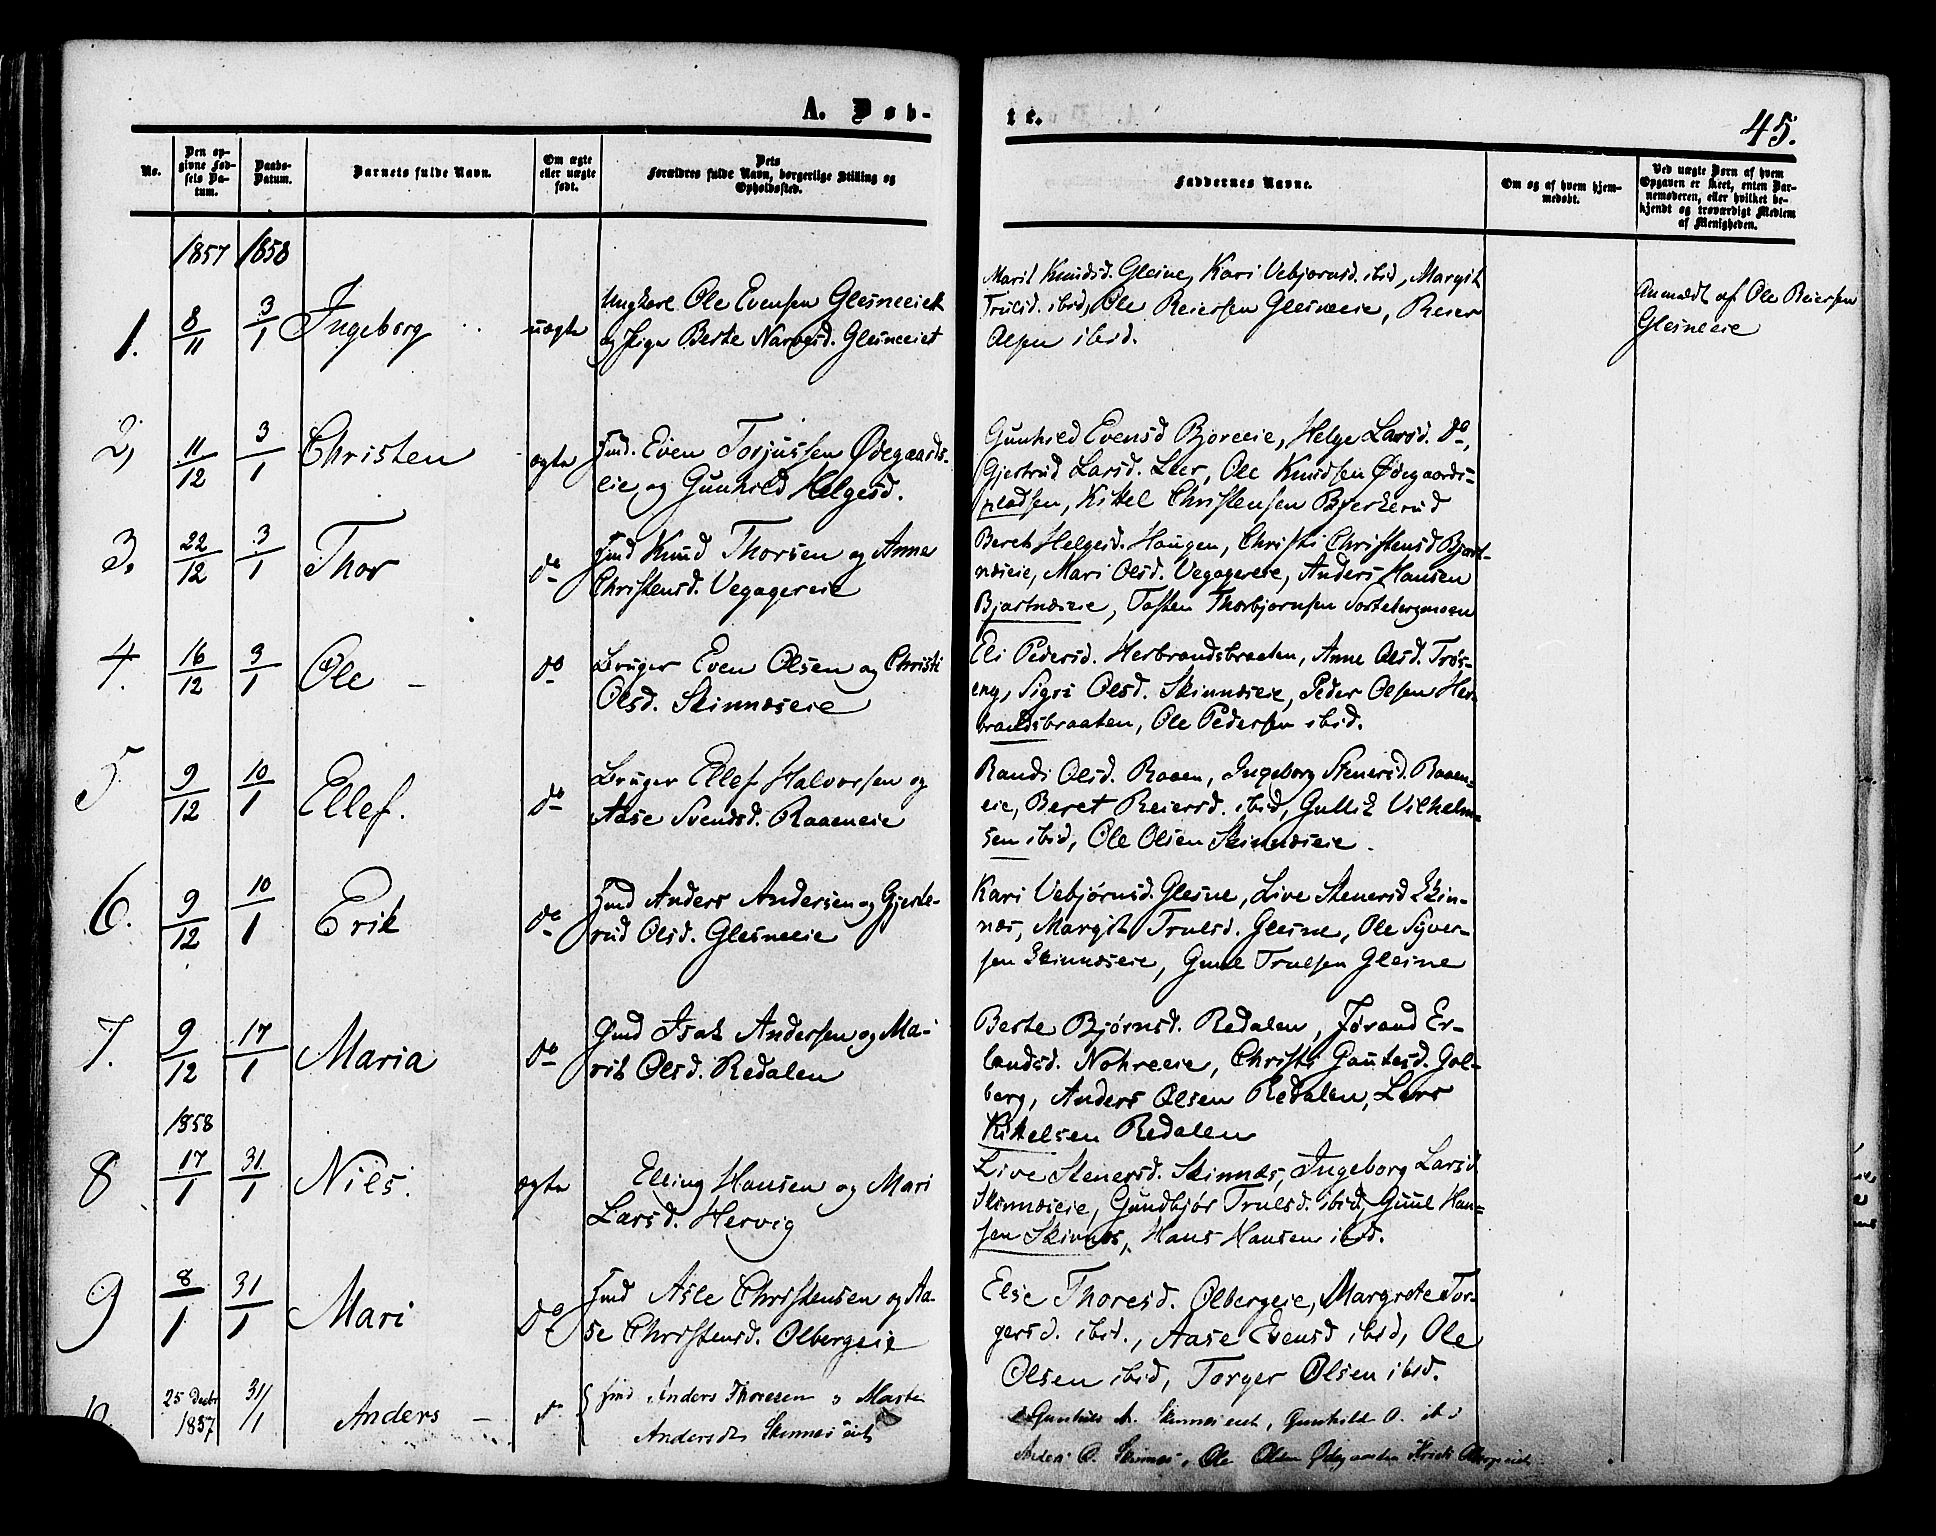 A. Døb-
te.
45.
No.
Den op-
givne Fød-
sels Da-
tum.
Daabs-
Datum.
Barnets fulde Navn.
Om ægte
eller uægte
født.
Dets
Forældres fulde Navn, borgerlige Stilling og
Opholdssted.
Faddernes Navne.
Om og af hvem hjem-
medøbt.
Ved uægte Børn af hvem
Opgaven er skeet, enten Bar-
nemoderen, eller hvilket be-
kjendt og troværdigt Medlem
af Menigheden.
1857 1858
1. 8/11 3/1 Ingeborg uægte
Ungkarl Ole Evensen Glesneeiet
og Pige Berte Narvesd. Glesneeiet
Marit Knudsd. Glesne, Kari Vebjørnsd. ibid, Margit
Trulsd. ibid, Ole Reiersen Glesneeie, Reier
Olsen ibid.
Anmældt af Ole Reiersen
Glesneeie
2, 11/12 3/1 Christen ægte
Hmd. Even Torjussen Ødegaards-
eie og Gunhild Helgesd.
Gunhild Evensd Bjoreeie, Helge Larsd. do,
Gjertrud Larsd. Leer, Ole Knudsen Ødegaards-
pladsen, Kittel Christensen Bjerkerud
3. 22/12 3/1 Thor do
Hmd Knud Thorsen og Anne
Christensd. Vegagereie
Beret Helgesd. Haugen, Christi Christensd Bjert-
næseie, Mari Olsd. Vegagereie, Anders Hansen
Bjertnæseie, Tosten Thorbjornsen Sortebergmoen
4. 16/12 3/1 Ole - do
Bruger Even Olsen og Christi
Olsd. Skinnæseie
Eli Pedersd. Herbrandsbraaten, Anne Olsd. Trøs-
eng, Sigri Olsd. Skinnæseie, Peder Olsen Her-
brandsbraaten, Ole Pedersen ibid.
5. 9/12 10/1 Ellef. do
Bruger Ellef Halvorsen og
Aase Svendsd. Raaeneie
Randi Olsd. Raaen, Ingeborg Stenersd. Raaen-
eie, Beret Reiersd. ibid, Gullik Vilhelm-
sen ibid, Ole Olsen Skinnæseie.
6. 9/12 10/1 Erik do
Hmd Anders Andersen og Gjerte-
rud Olsd. Glesneeie
Kari Vebjørnsd. Glesne, Live Stenersd Skin-
næs, Margit Trulsd. Glesne, Ole Syver-
sen Skinnæseie, Guul Trulsen Glesne
7. 9/12 17/1 Maria do
Gmd Isak Andersen og Ma-
rit Olsd. Redalen
Berte Bjørnsd. Redalen, Jørand Er-
landsd. Nohreeie, Christi Gautesd. Gol-
berg, Anders Olsen Redalen, Lars
Kittelsen Redalen
1858
8 17/1 31/1 Niels. ægte
Elling Hansen og Mari
Larsd. Hervig
Live Stenersd. Skinnæs, Ingeborg Larsd.
Skinnæseie, Gundbjør Trulsd. ibid, Guul Han-
sen Skinnæs, Hans Hansen ibid.
9 8/1 31/1 Mari do
Hmd Asle Christensen og Aa-
se Christensd. Olbergeie
Else Thoresd. Olbergeie, Margrete Tor-
gersd. ibid., Aase Evensd ibid, Ole
Olsen ibid, Torger Olsen ibid.
25 Decbr 1857 31/1 Anders - do
Hmd Anders Thoresen o Marte
Andersdtr Skinnes eiet
Gunhild A. Skinnes eiet, Gunhild O. ibid
Anders O. Skinnes, Ole Olsen Ødegaarden